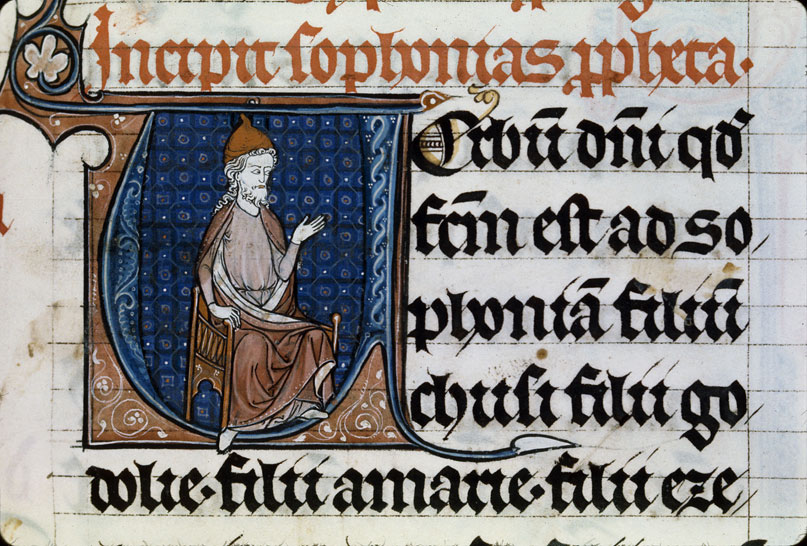 Incipit sophonias ꝓpheta.
VErbū dn̄i qd̄
fcm̄ est ad so
phoniā filiū
chusi filii go
dolie. filii amarie. filii eze